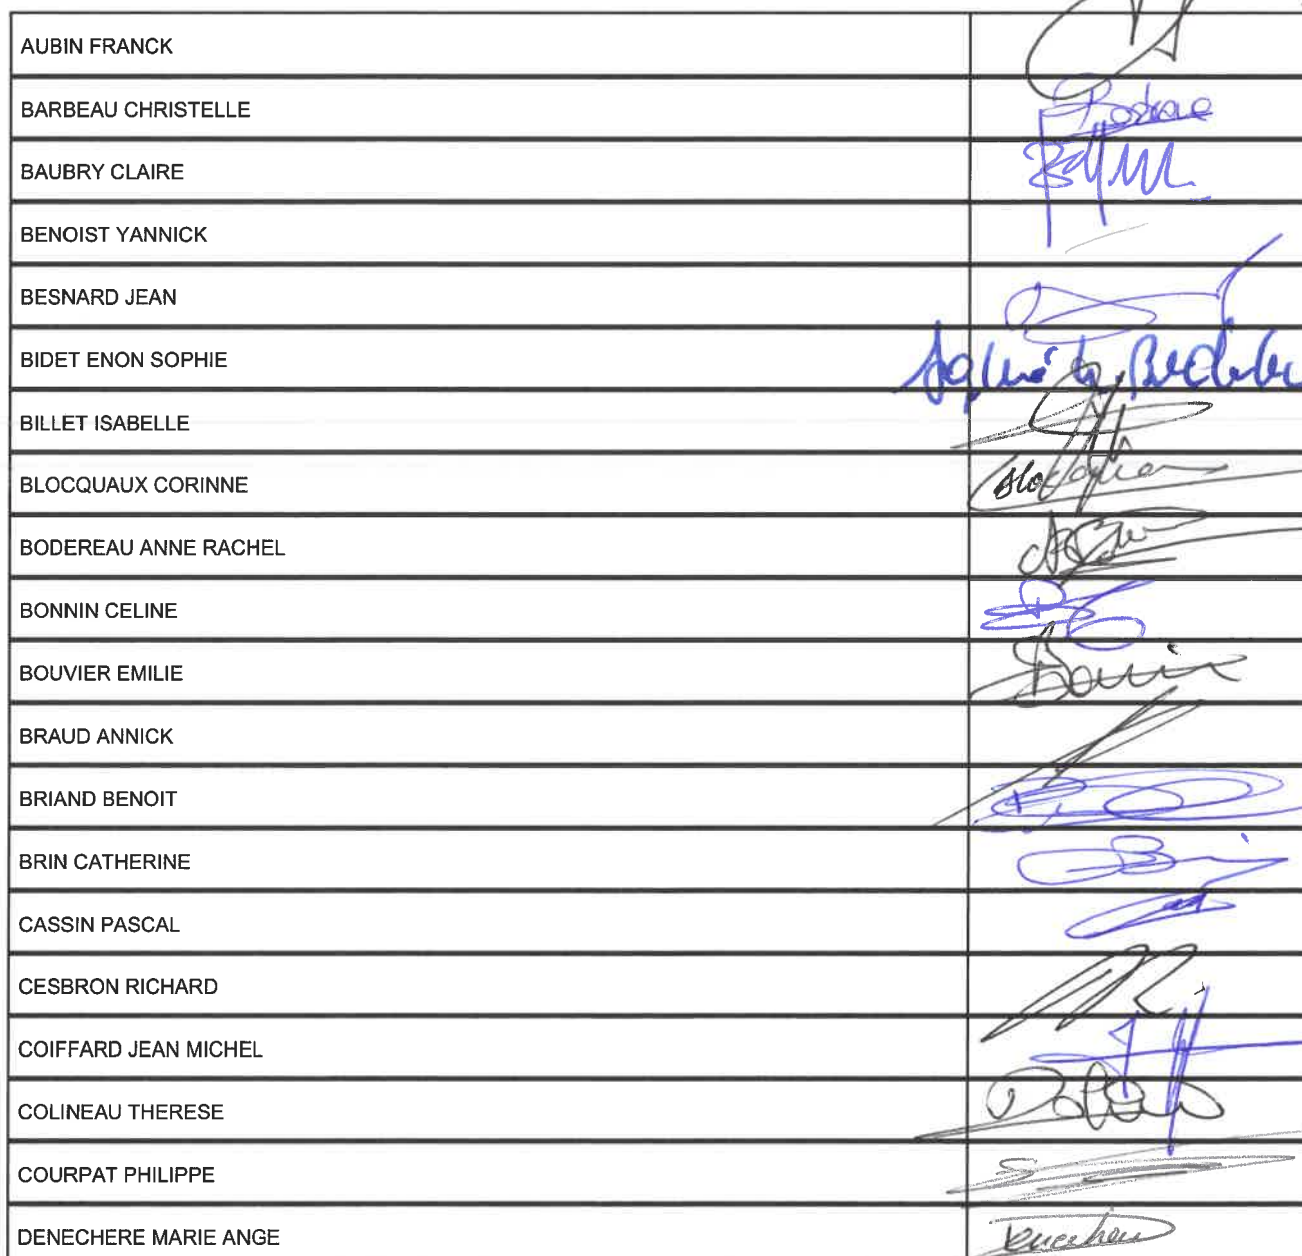 AUBIN FRANCK
BARBEAU CHRISTELLE
BAUBRY CLAIRE
BENOIST YANNICK
BESNARD JEAN
BIDET ENON SOPHIE
BILLET ISABELLE
BLOCQUAUX CORINNE
BODEREAU ANNE RACHEL
BONNIN CELINE
BOUVIER EMILIE
BRAUD ANNICK
BRIAND BENOIT
BRIN CATHERINE
CASSIN PASCAL
CESBRON RICHARD
COIFFARD JEAN MICHEL
COLINEAU THERESE
COURPAT PHILIPPE
DENECHERE MARIE ANGE